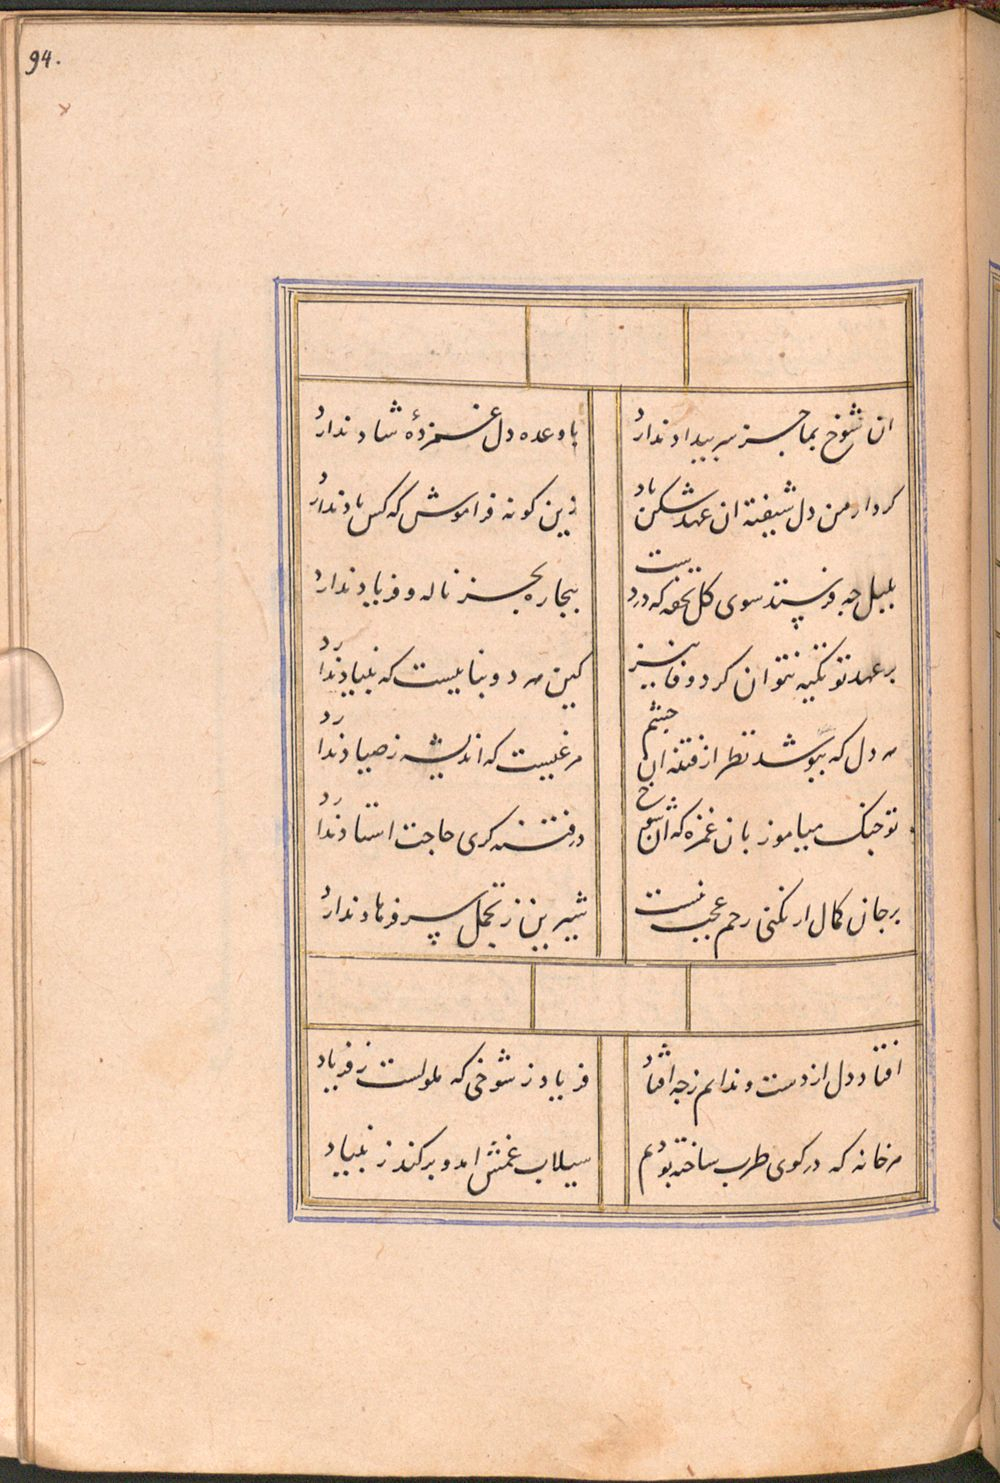 94.
ان شوخ بما جز سر بیداد ندارد
با وعده دل غمزدهٔ شاد ندارد
کرد از من دل شیفته ان عهد شکن یاد
زین کونه فراموش که کس یاد ندارد
بلبل چه فرستد سوی کل تحفه که در دست
بیجاره بجز ناله و فریاد ندارد
بر عهد تو تکیه نتوان کرد و فا نیز
کین هر دو بناییست که بنیاد ندارد
هر دل که بپوشد نظر از فتنه ان چشم
مرغیست که اندیشه ز صیاد ندارد
تو جنک میاموز بان غمزه که ان شوخ
در فتنه کری حاجت استاد ندارد
بر جان کمال ار نکنی رحم عجب نیست
شیرین ز تجمل سر فرهاد ندارد
افتاد دل از دست و ندانم ز چه افتاد
فریاد ز شوخی که ملولست ز فریاد
هر خانه که در کوی طرب ساخته بودم
سیلاب غمش امد و برکند ز بنیاد